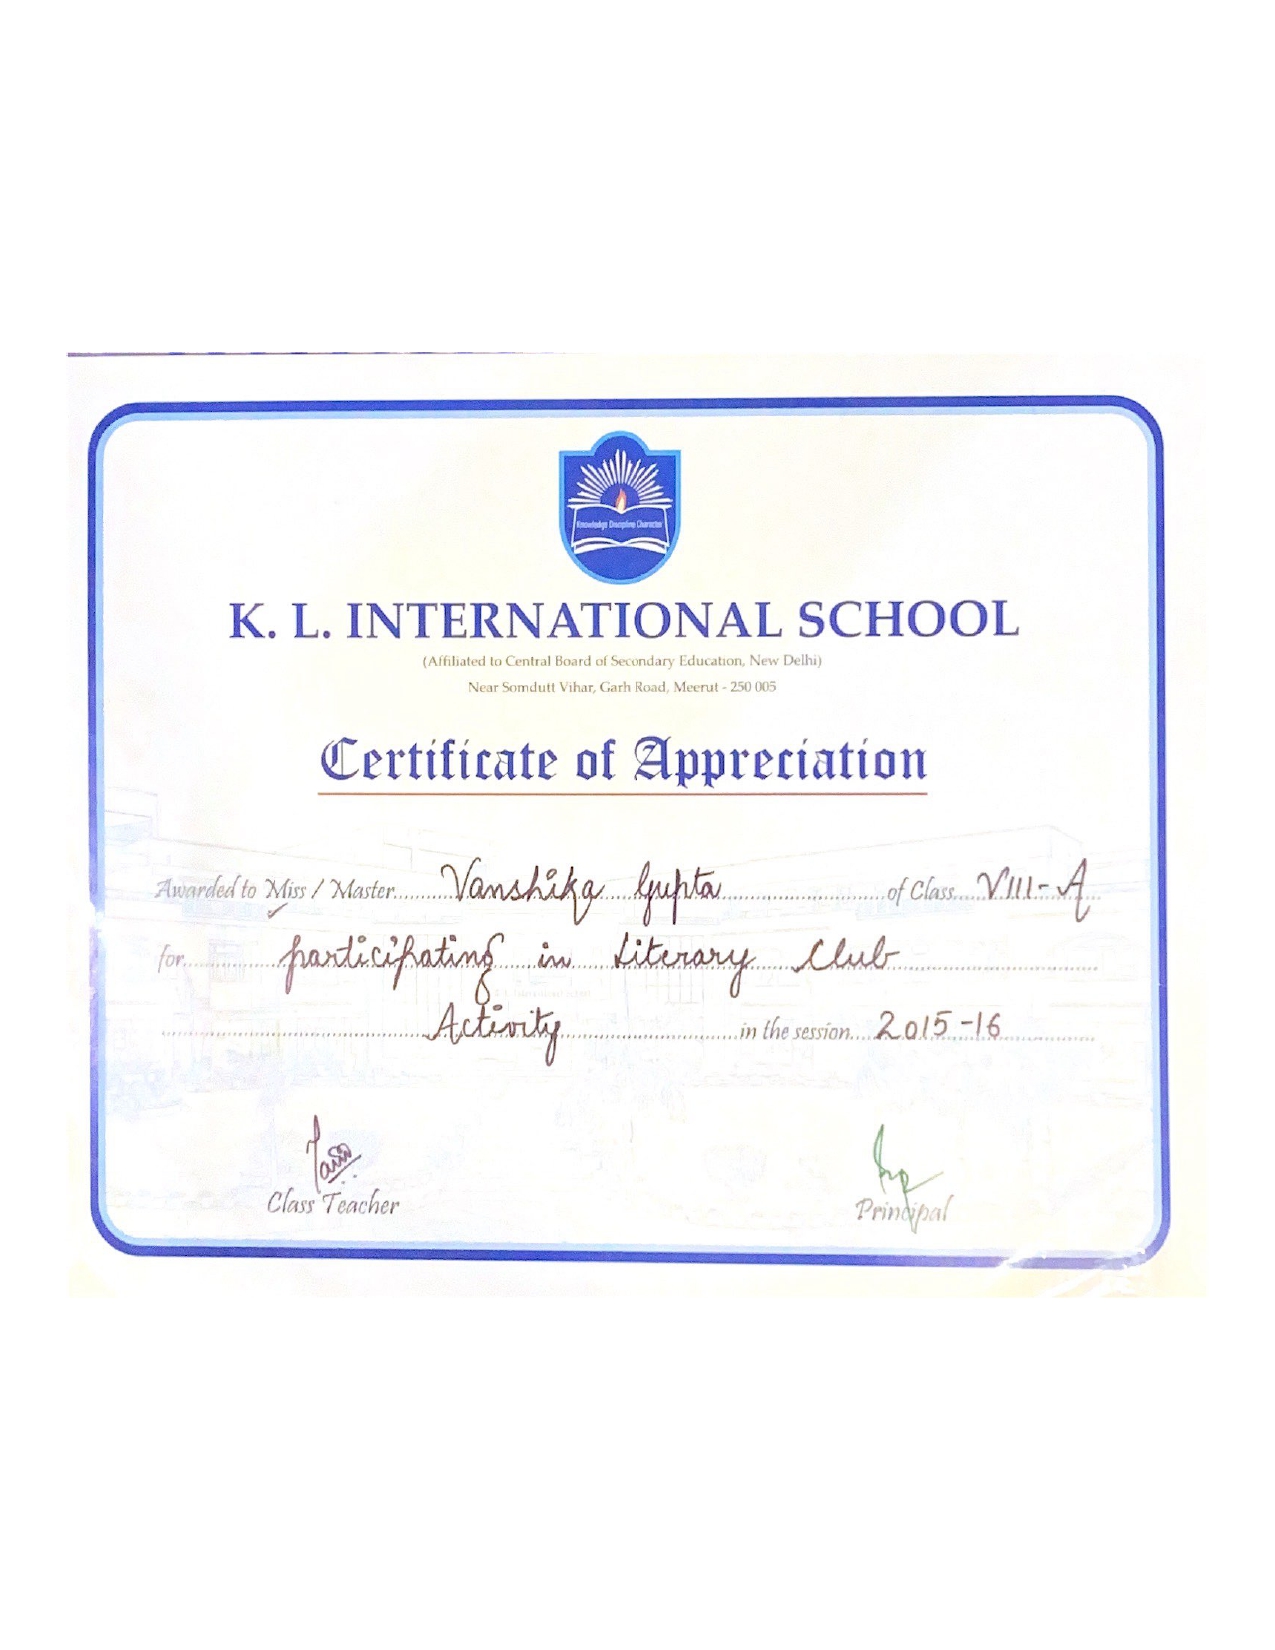 Knowledge Discipline Character
K. L. INTERNATIONAL SCHOOL
(Affiliated to Central Board of Secondary Education, New Delhi)
Near Somdutt Vihar, Garh Road, Meerut - 250 005
Certificate of Appreciation
Awarded to Miss / Master Vanshika Gupta of Class VIII-A
for participating in Literary Club
Activity in the session 2015-16
Class Teacher Principal